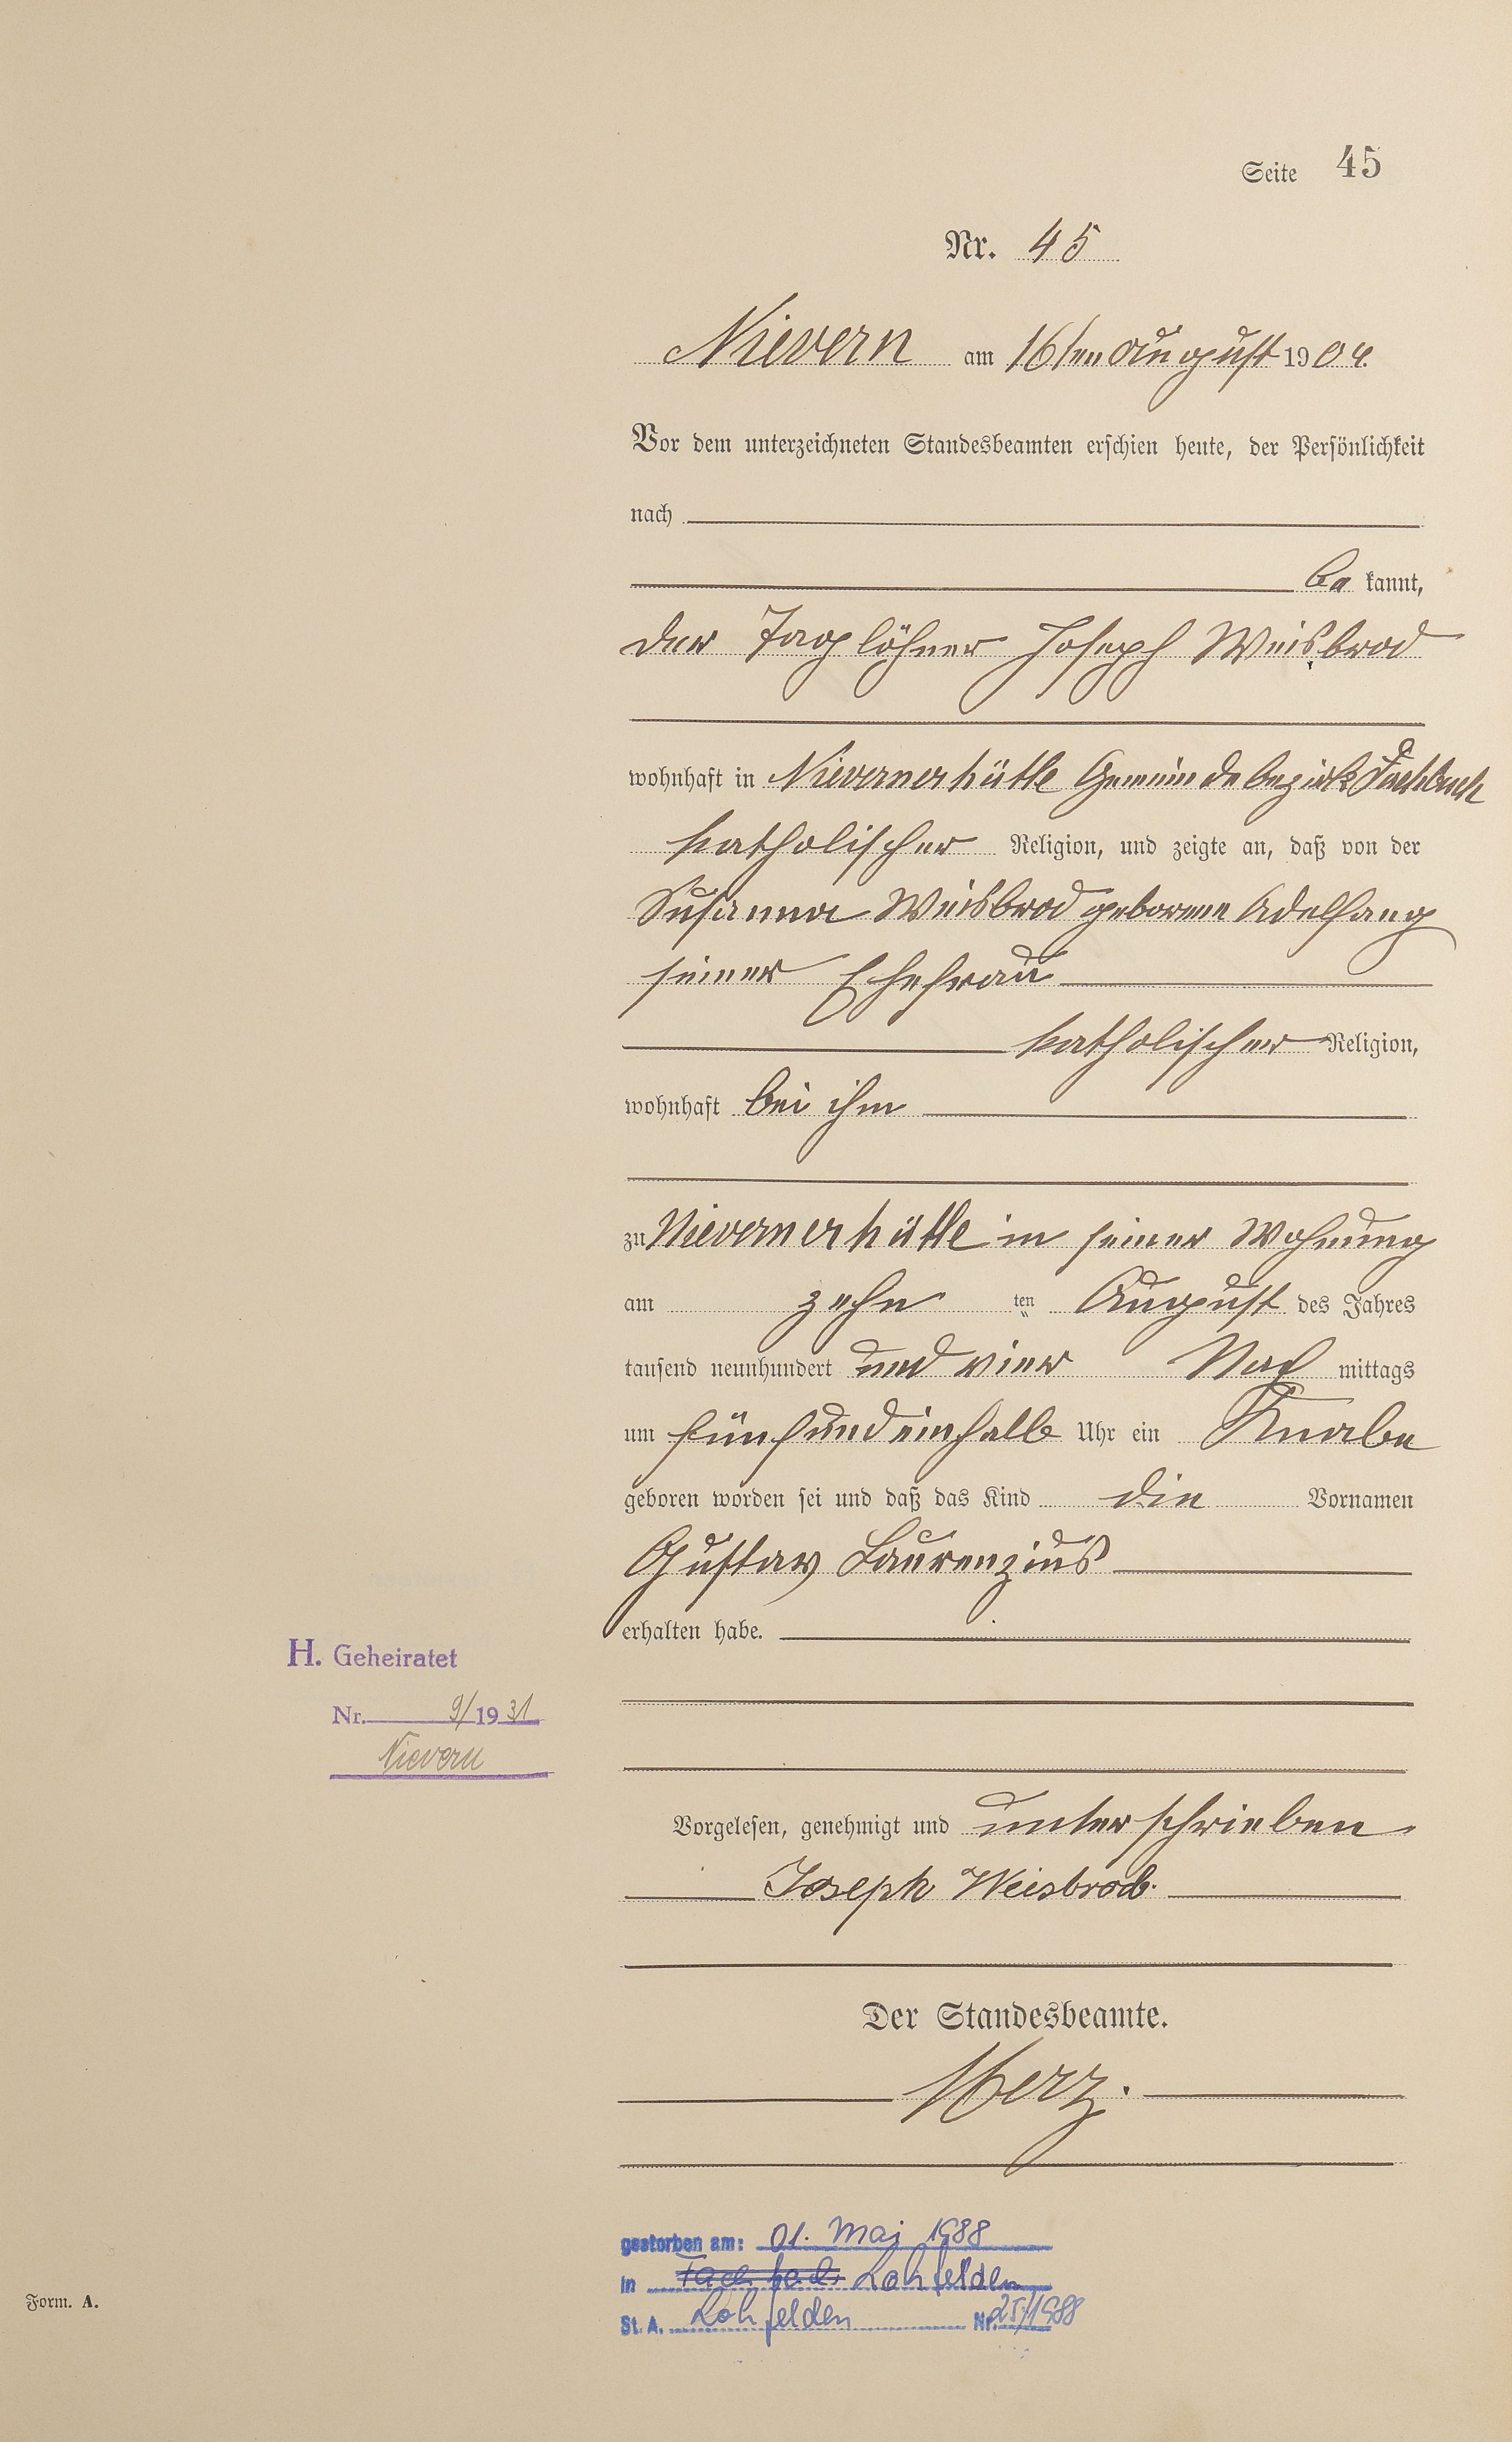 Seite 45
Nr. 45
Nievern am 16ten August 1904.
Vor dem unterzeichneten Standesbeamten erschien heute, der Persönlichkeit
nach
be kannt,
der Taglöhner Joseph Weisbrod
wohnhaft in Nievernerhütte Gemeindebezirk Fachbach
katholischer Religion, und zeigte an, daß von der
Susanna Weisbrod geborene Adelfang
seiner Ehefrau
katholischer Religion,
wohnhaft bei ihm
zu Nievernerhütte in seiner Wohnung
am zehn ten August des Jahres
tausend neunhundert und vier Nach mittags
um fünfundeinhalb Uhr ein Knabe
geboren worden sei und daß das Kind die Vornamen
Gustav Laurenzius
erhalten habe.
H. Geheiratet
Nr. 9/1931
Nievern
Vorgelesen, genehmigt und unterschrieben
Joseph Weisbrod.
Der Standesbeamte.
Merz.
gestorben am: 01. Mai 1988
in Fachbach Lohfelden
St. A. Lohfelden Nr. 25/1988
Form. A.